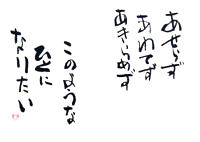 あせらず
あわてず
あきらめず
このような
ひとに
なりたい